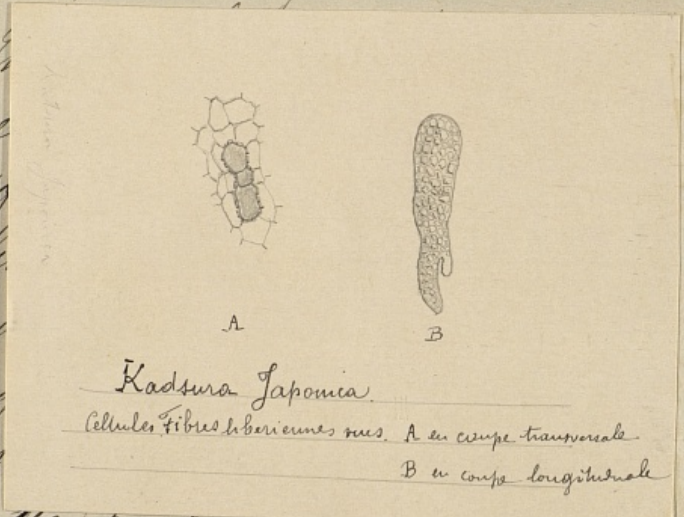 A
B
Kadsura Japonica.
Cellules Fibres liberiennes vues. A en coupe transversale.
B en coupe longitudinale